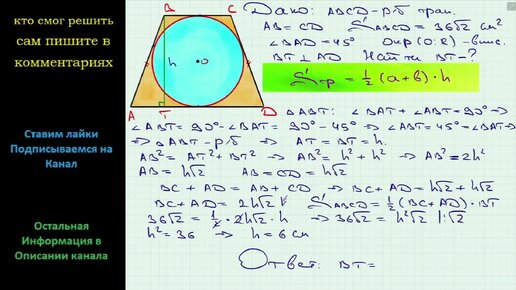 кто смог решить
сам пишите в
комментариях
Ставим лайки
Подписываемся на
Канал
Остальная
Информация в
Описании канала
B C
h O
A T D
Дано: ABCD – р.б трап.
AB = CD S ABCD = 36√2 см²
∠BAD = 45° Окр (O; R) – впис.
BT ⊥ AD Найти BT – ?
Sтр = 1/2 (a+b) · h
△ABT: ∠BAT + ∠ABT = 90° ⇒
∠ABT = 90° - ∠BAT = 90° - 45° ⇒ ∠ABT = 45° = ∠BAT ⇒
⇒ △ABT – р/б ⇒ AT = BT = h.
AB² = AT² + BT² ⇒ AB² = h² + h² ⇒ AB² = 2h²
AB = h√2 AB = CD = h√2
BC + AD = AB + CD ⇒ BC + AD = h√2 + h√2
BC + AD = 2h√2 S ABCD = 1/2 (BC + AD) · BT
36√2 = 1/2 · 2h√2 · h ⇒ 36√2 = h²√2 |:√2
h² = 36 ⇒ h = 6 см
Ответ: BT =